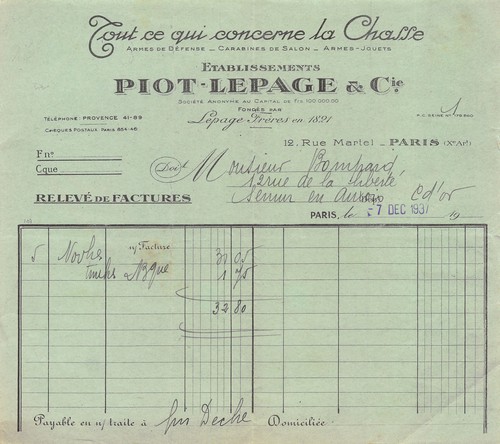 Tout ce qui concerne la Chasse
ARMES DE DÉFENSE – CARABINES DE SALON – ARMES-JOUETS
ETABLISSEMENTS
PIOT-LEPAGE & Cie
SOCIÉTÉ ANONYME AU CAPITAL DE FRS 100.000.00
FONDÉS PAR
Lepage Frères en 1821
TÉLÉPHONE: PROVENCE 41-89
CHÈQUES POSTAUX: PARIS 854-46
R.C. SEINE No
12, Rue Martel – PARIS (Xe Arrt)
F no
Cque
Doit Monsieur Bompard,
12 rue de la Liberté
Semur en Auxois Cd'or
RELEVÉ DE FACTURES
PARIS, le 7 DEC 1937 19
5 n/ Facture 31 05
timbre 1 75
32 80
Payable en n/ traite à fin Domiciliée